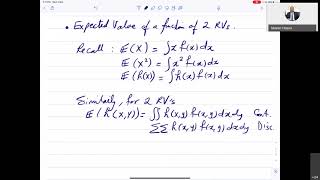 • Expected Value of a function of 2 RVs.
Recall : E(X) = ∫x f(x) dx
E(X²) = ∫x² f(x) dx
E(h(x)) = ∫h(x) f(x) dx
Similarly, for 2 RV's
E(h(X,Y)) = ∫∫ h(x,y) f(x,y) dx dy Cont.
ΣΣ h(x,y) f(x,y) dx dy Disc.